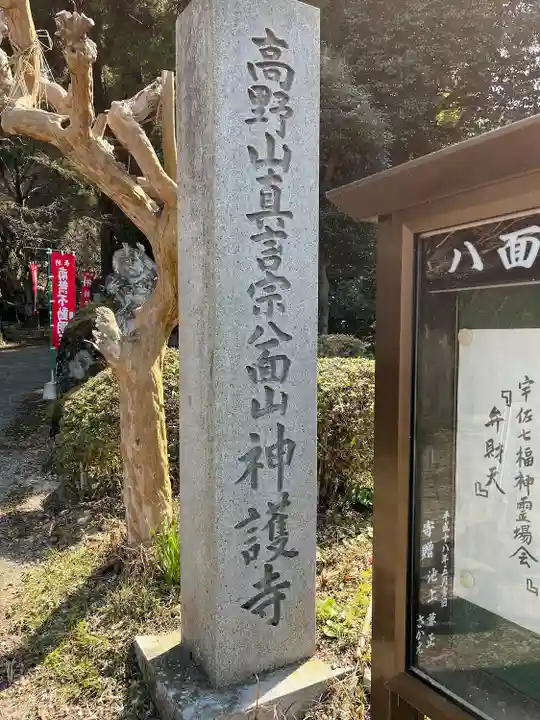 高野山真言宗八面山神護寺
八面
宇佐七福神霊場会
『弁財天』
寄贈 池上
南無不動明